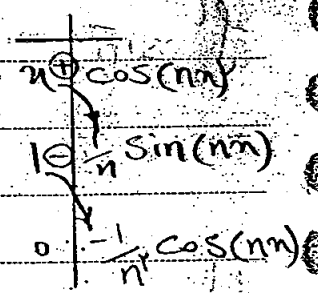 x + cos(nx)
1 - 1/n sin(nx)
0 -1/n² cos(nx)